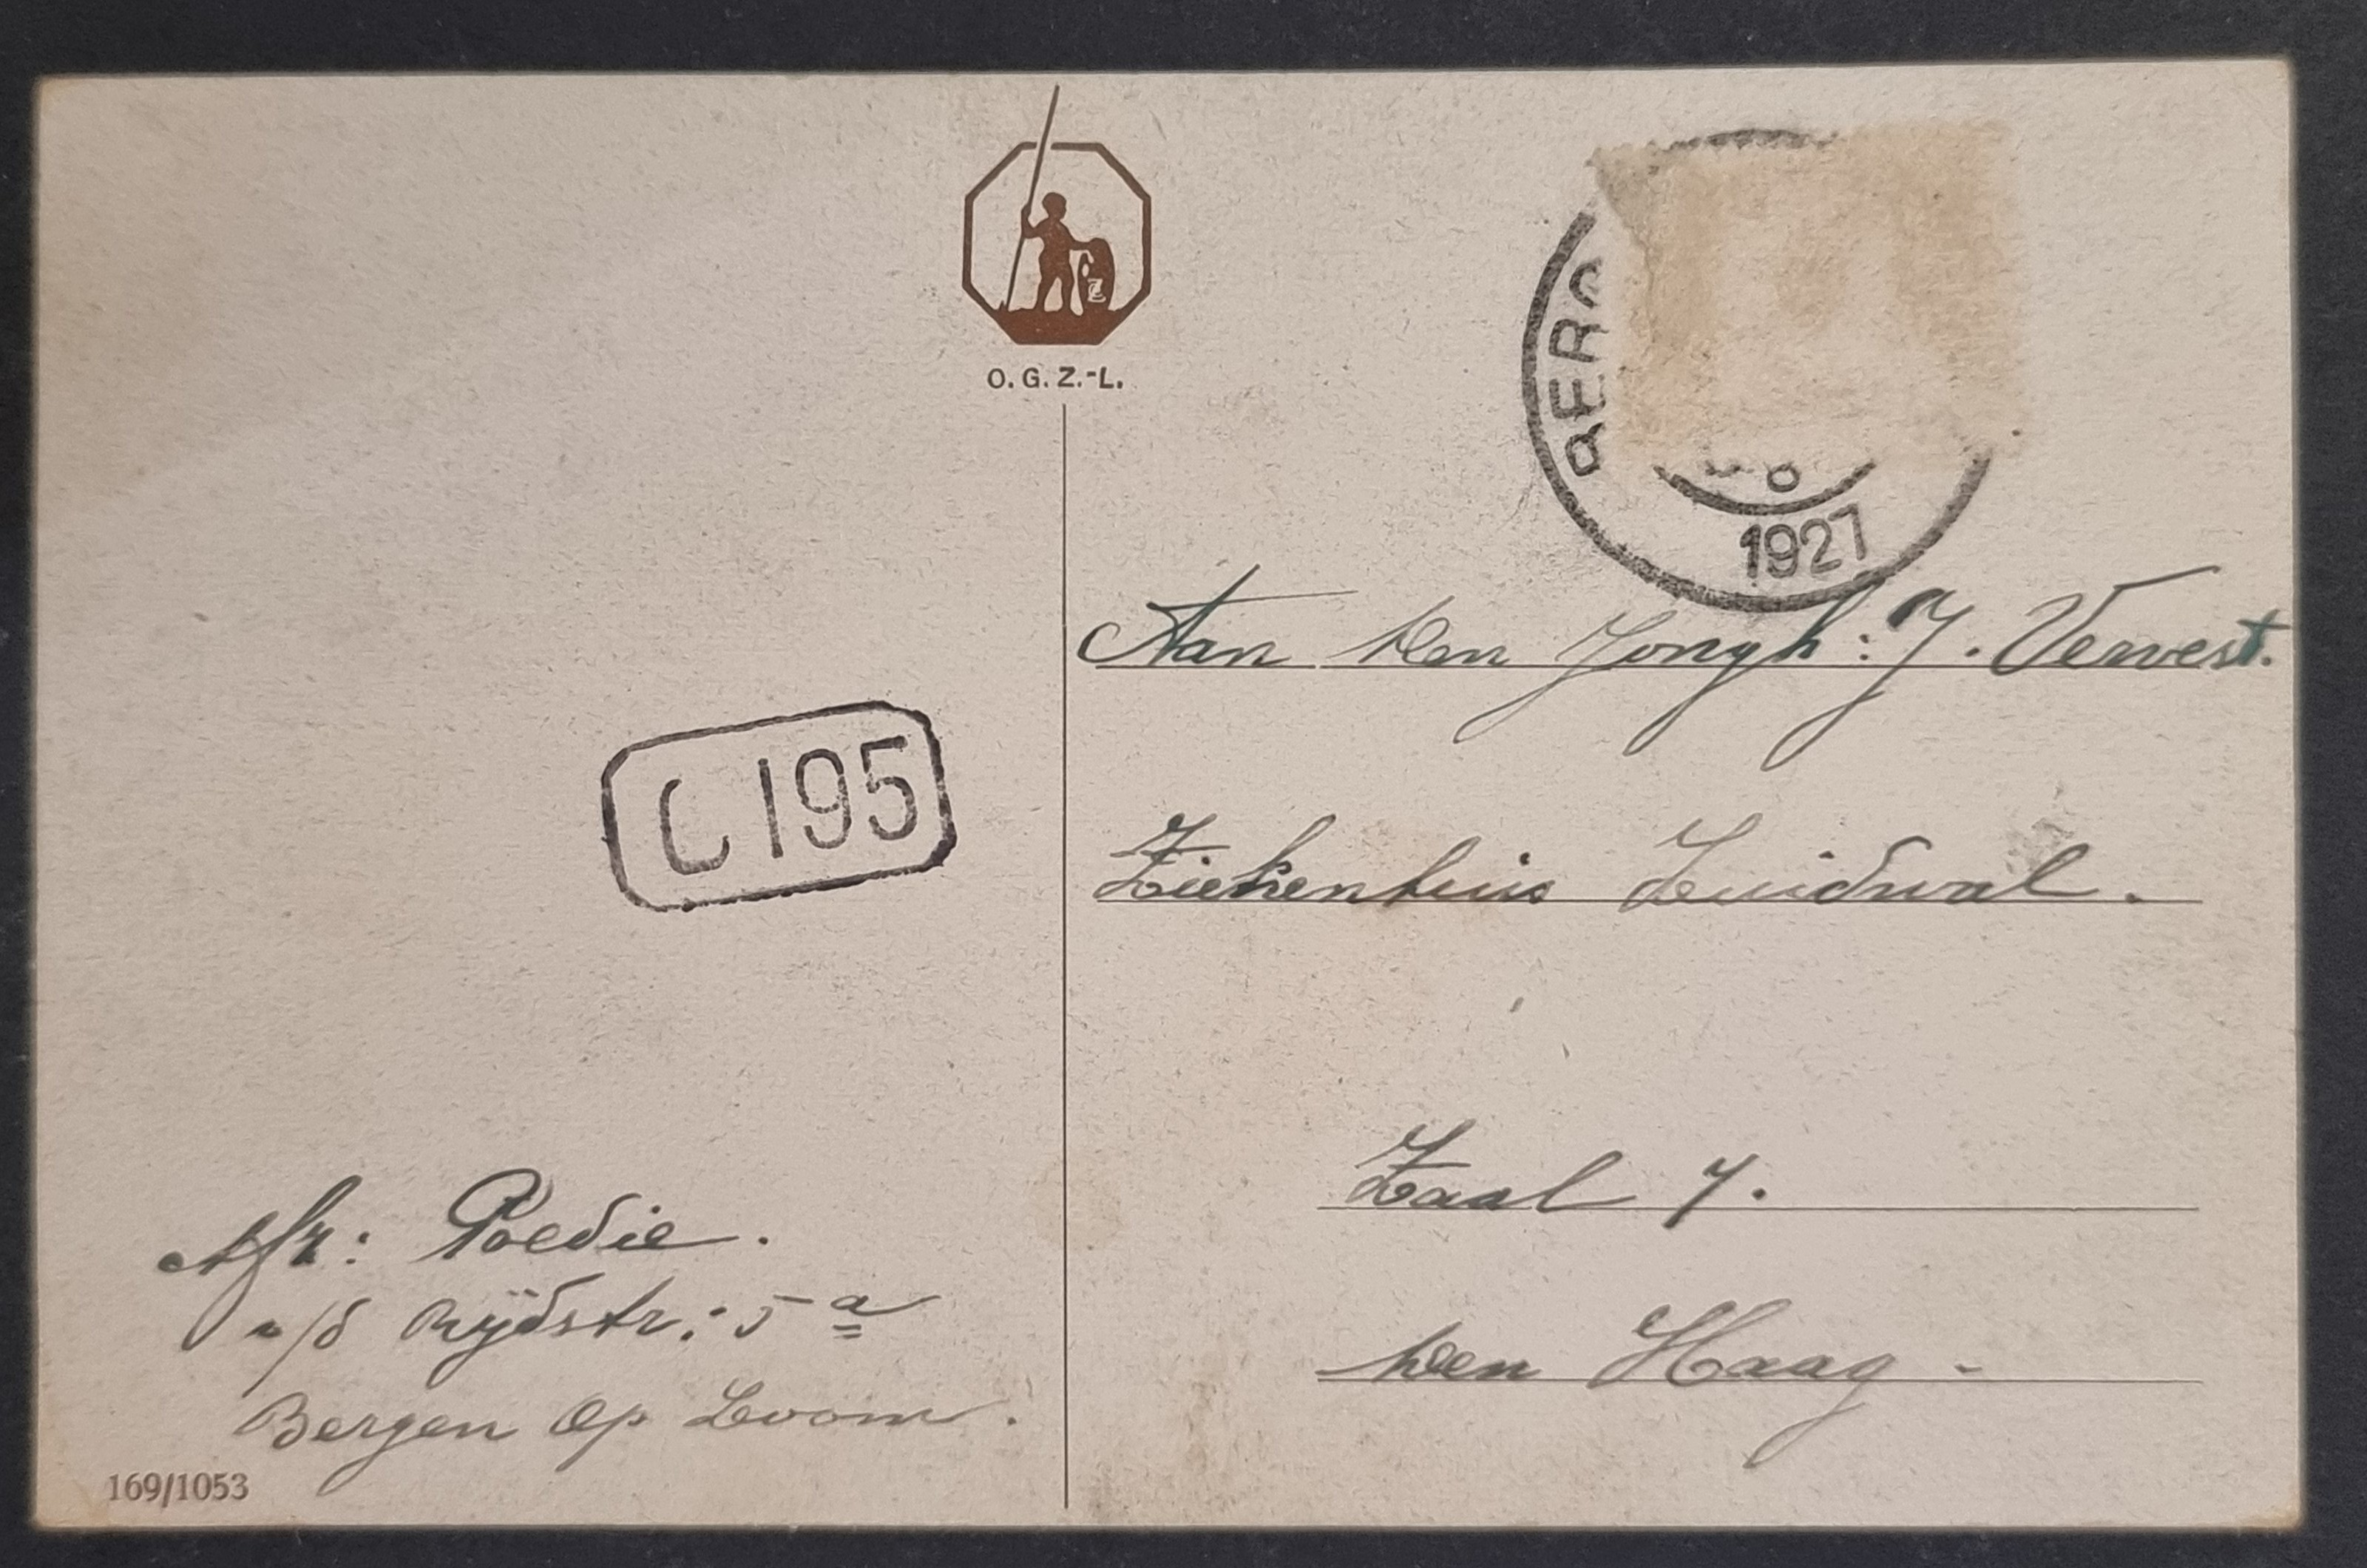 O. G. Z.-L.
BERG
1927
Aan den Jongh: J. Vervest.
Ziekenhuis Zuidwal.
Zaal 7.
den Haag -
C 195
Afz: Poedie.
a/d Rijdstr: 5 a
Bergen Op Zoom.
169/1053